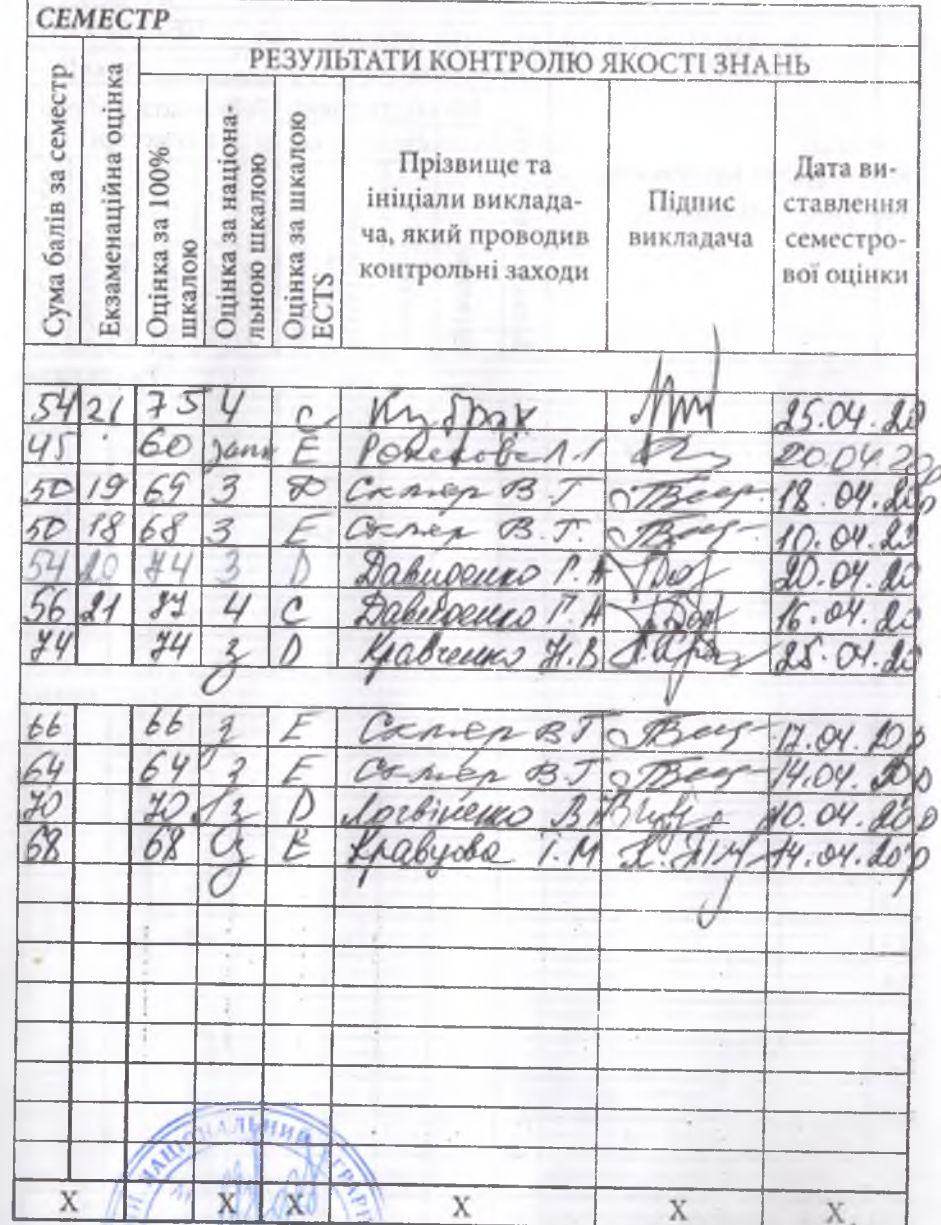 СЕМЕСТР
РЕЗУЛЬТАТИ КОНТРОЛЮ ЯКОСТІ ЗНАНЬ
Сума балів за семестр
Екзаменаційна оцінка
Оцінка за 100% шкалою
Оцінка за націона-
льною шкалою
Оцінка за шкалою
ECTS
Прізвище та
ініціали виклада-
ча, який проводив
контрольні заходи
Підпис
викладача
Дата ви-
ставлення
семестро-
вої оцінки
54 21 75 4 C 25.04.20
45 60 E 20.04.20р
50 19 69 3 D Скляр В.Г. 18.04.20р
50 18 68 3 E Скляр В.Г. 10.04.20
54 20 74 3 D Давиденко Г.А 20.04.20
56 21 77 4 C Давиденко Г.А 16.04.20
74 74 з D Кравченко Н.В 25.04.20
66 66 з E Скляр В.Г 17.04.20р
64 64 з E Скляр В.Г 14.04.20р
70 70 з D Логвіненко В 10.04.20р
68 68 з E Кравцова Т.М 14.04.20р
НАЦІОНАЛЬНИЙ АГРАР
X X X X X X